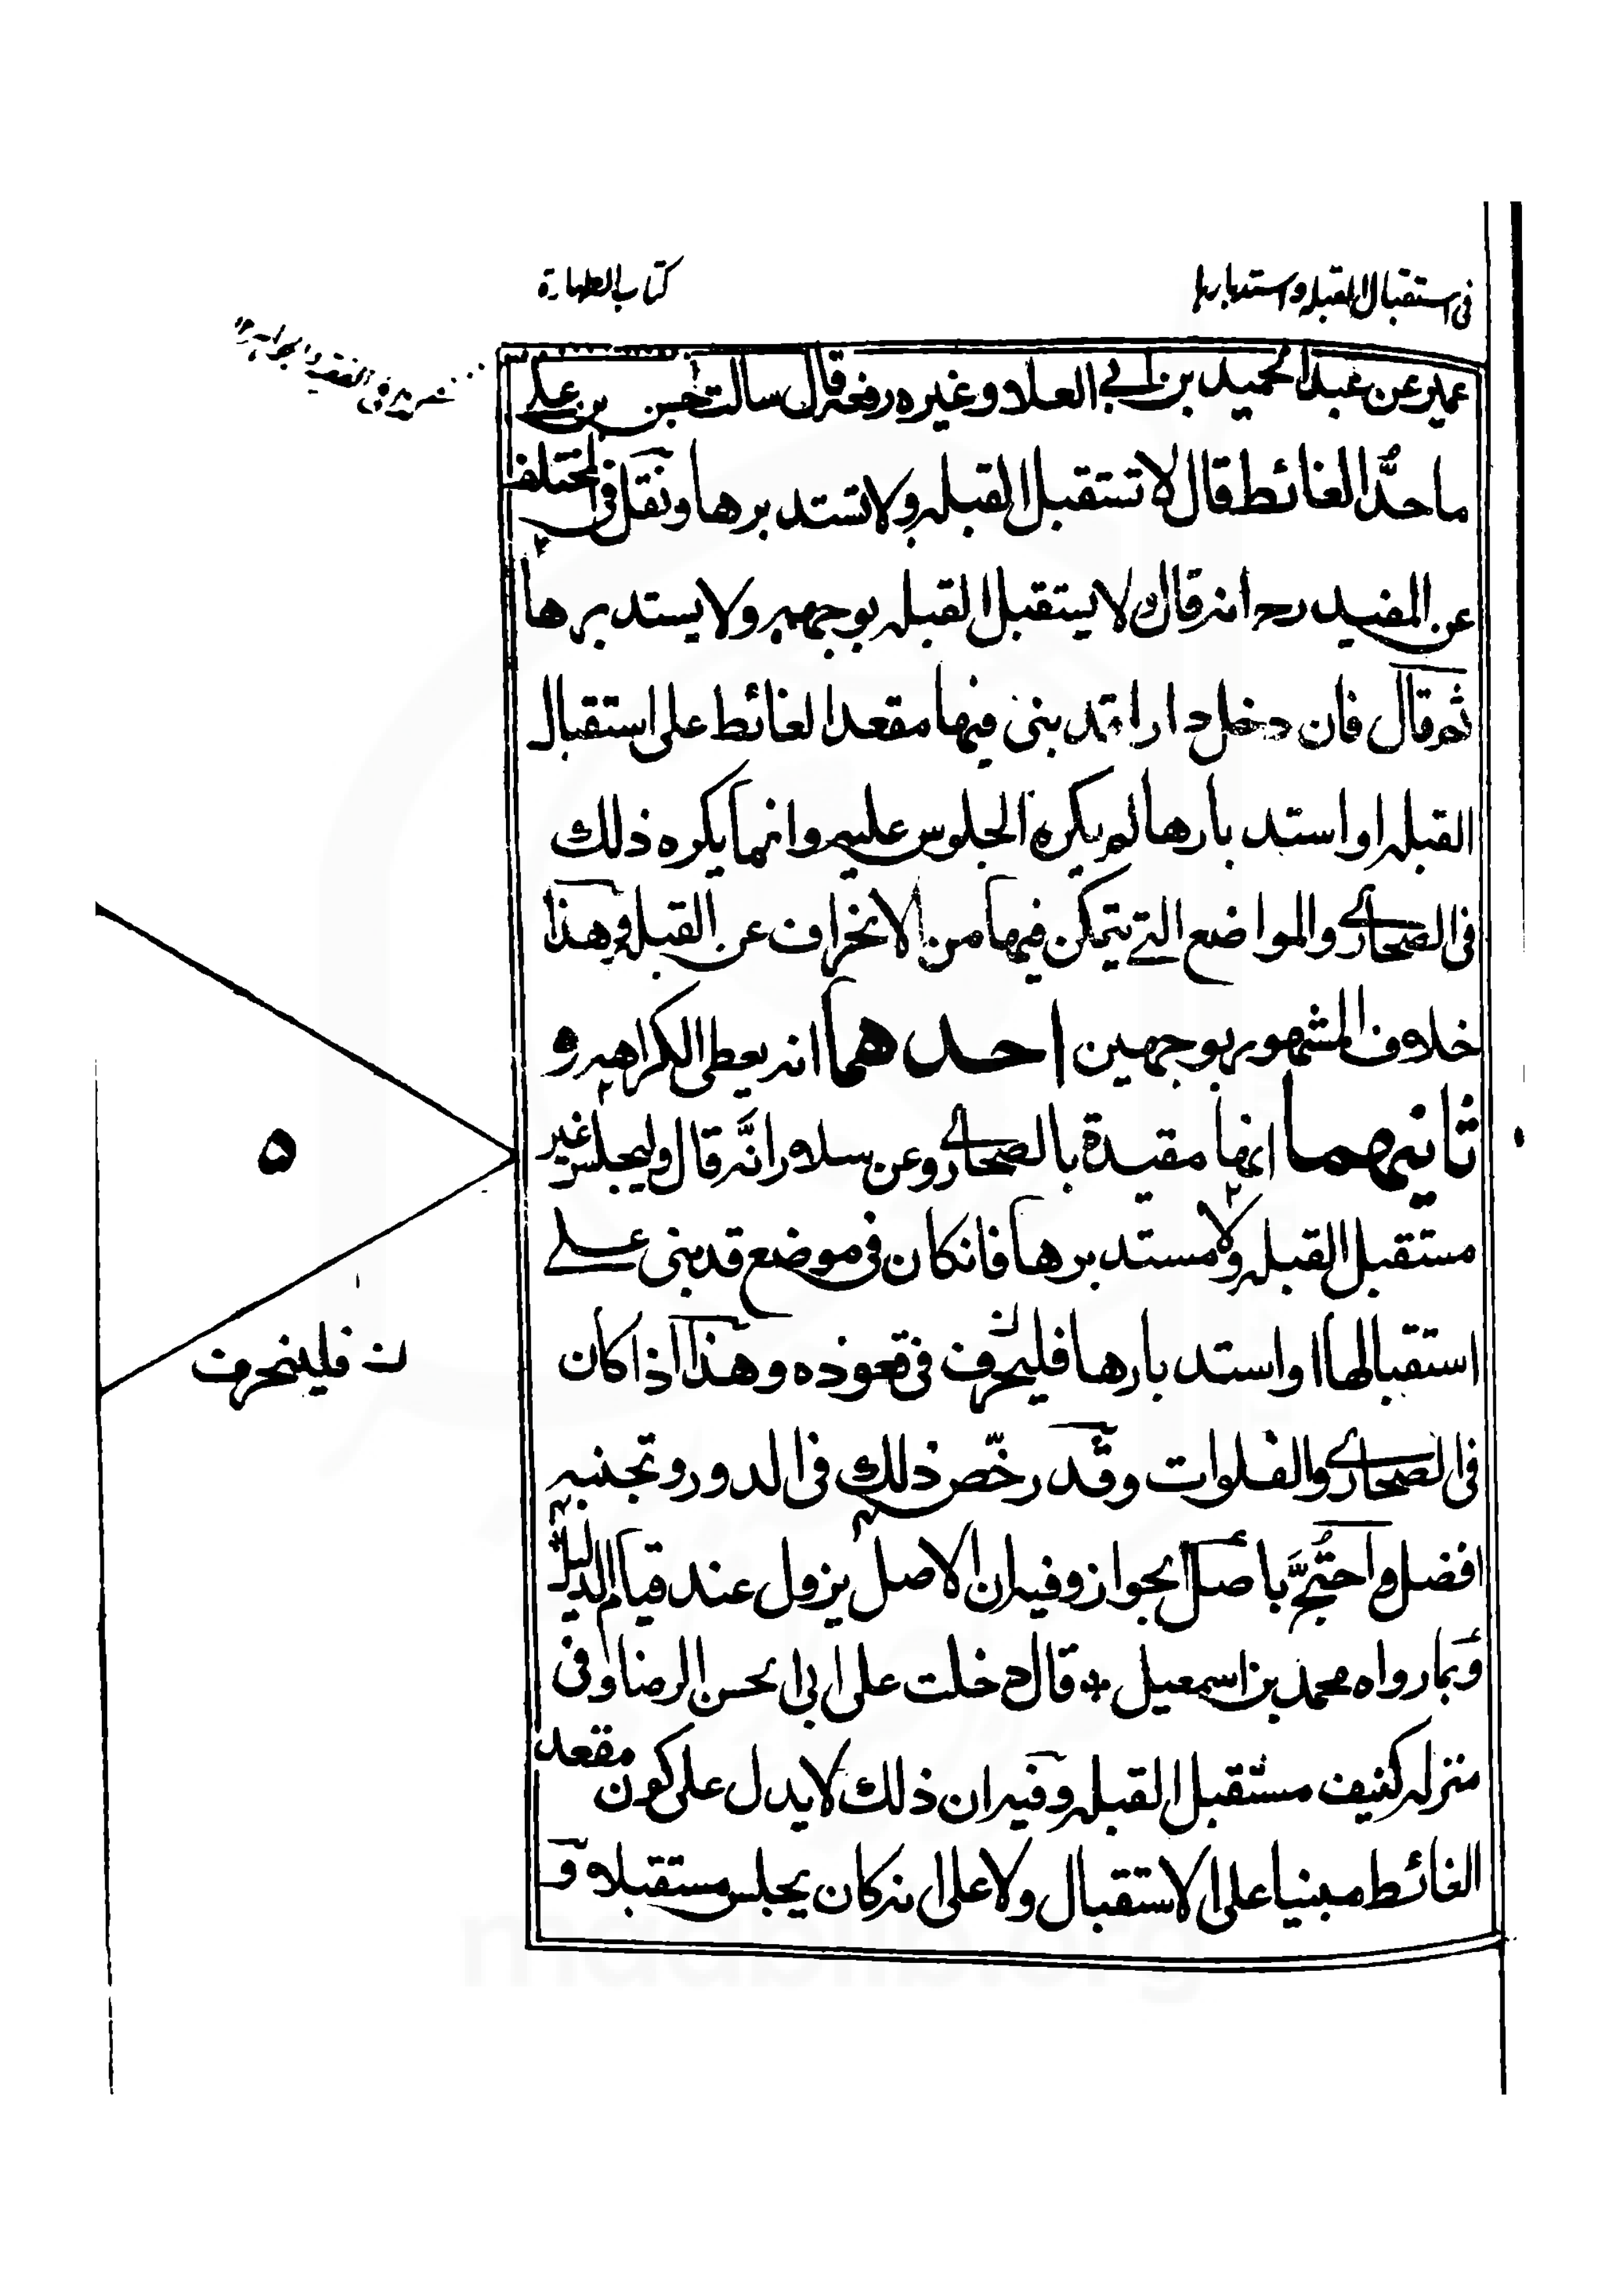 فى استقبال القبله واستدبارها
كتاب الطهارة
عمير عن عبد الحميد بن ابي العلا وغيره رفعه قال سالت حسن بن علي
ما حدُّ الغائط قال لا تستقبل القبله ولا تستدبرها ونقل فى المختلف
عن المفيد رح انه قال لا يستقبل القبله بوجهه ولا يستدبرها
ثم قال فان دخل دارا قد بنى فيها مقعد الغائط على استقبال
القبله او استدبارها لم يكره الجلوس عليه وانما يكره ذلك
فى الصحارے والمواضع التے يتمكن فيها من الانحراف عن القبله وهذا
خلاف المشهور بوجهين احدهما انه يعطى الكراهيه و
ثانيهما انها مقيدة بالصحارے وعن سلار انَّه قال وليجلس غير
مستقبل القبله ولا مستدبرها فانكان فى موضع قد بنى علے
استقبالها او استدبارها فليحرف فى قعوده وهذا اذا كان
فى الصحارے والفلوات وقد رخّص ذلك فى الدور وتجنبه
افضل واحتُجَّ باصل الجواز وفيه ان الاصل يزول عند قيام الدليل
وبما رواه محمد بن اسمعيل قال دخلت على ابى الحسن الرضا وفى
منزله كنيف مستقبل القبله وفيه ان ذلك لا يدل على كون مقعد
الغائط مبنيا على الاستقبال ولا على انه كان يجلس مستقبلا و
۵
ن فلينحرف